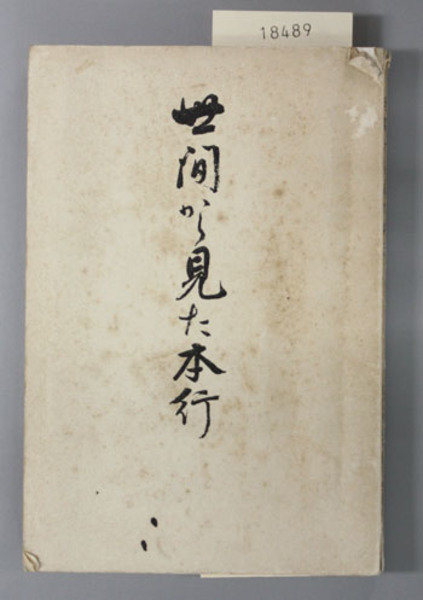 18489
世间から見た本行